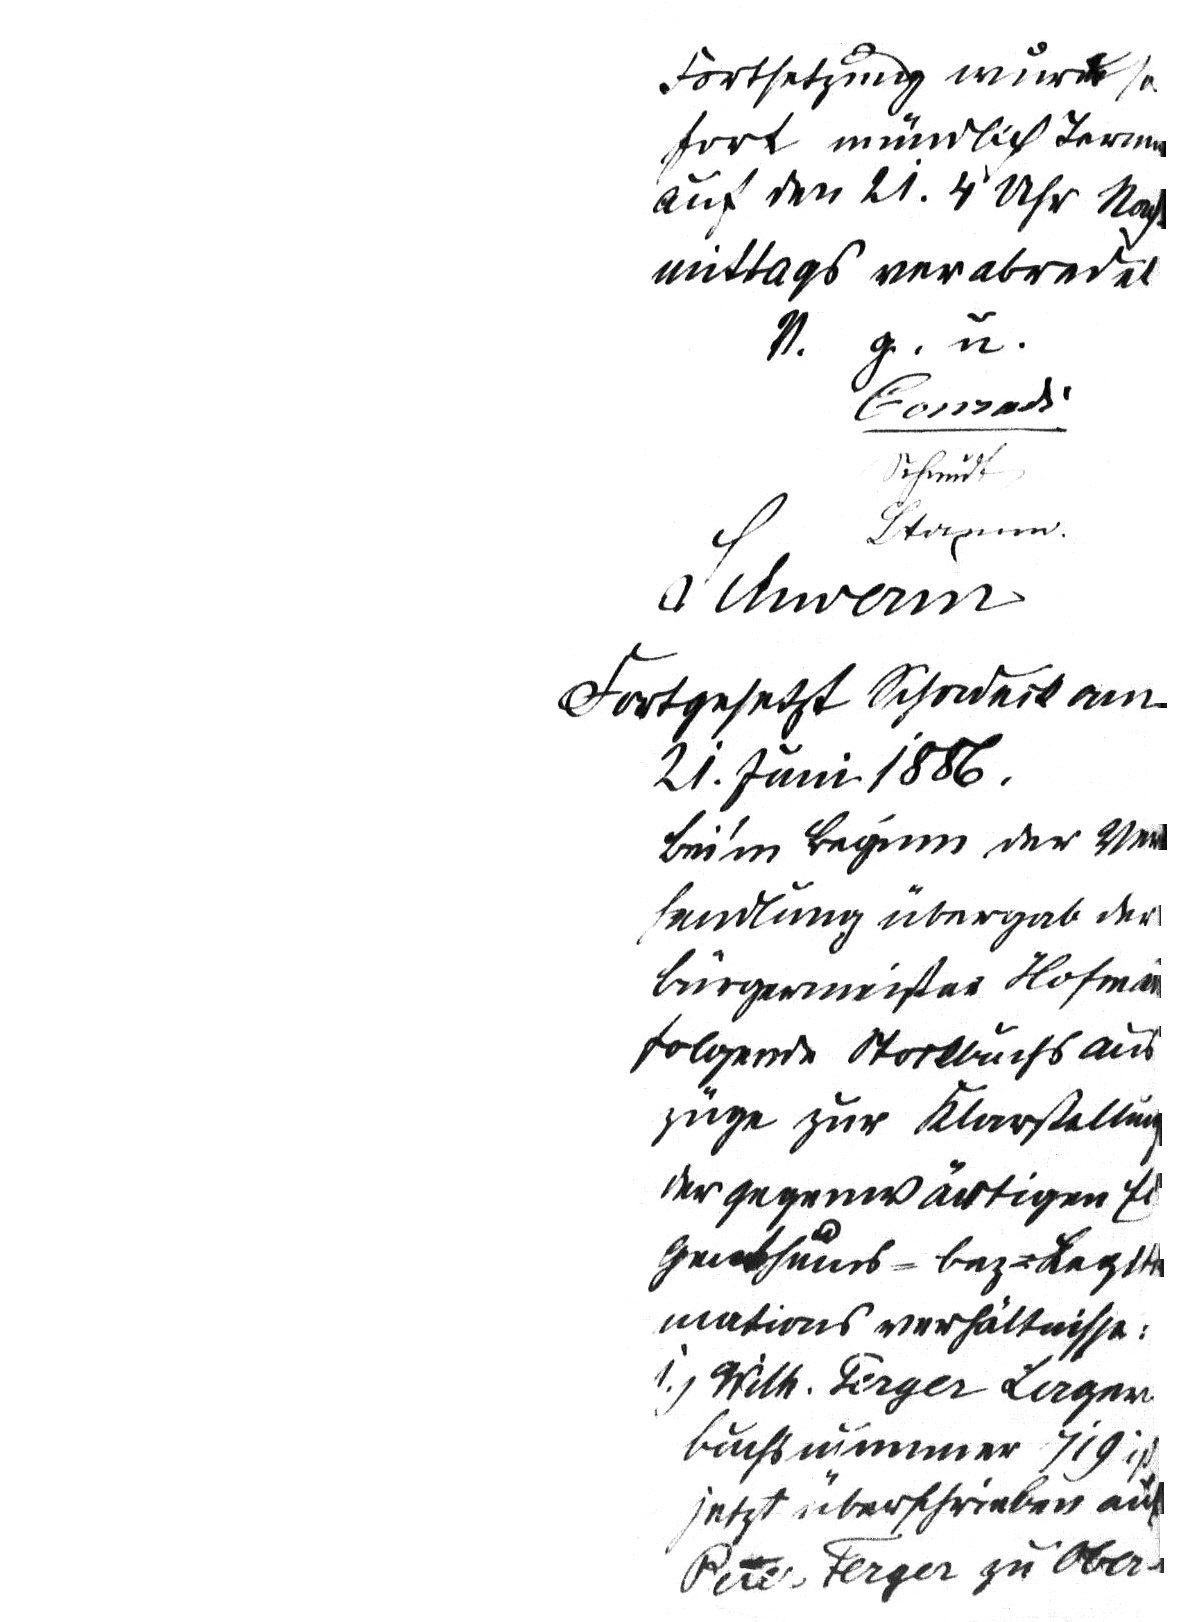 Fortsetzung wurde so
fort mündlich Termin
auf den 21. 4 Uhr Nach
mittags verabredet
V. g. u.
Conradi
Schmidt
Stamm.
Schwerin
Fortgesetzt Schadeck am
21. Juni 1886.
Beim Beginn der Ver
handlung übergab der
Bürgermeister Hofman
folgende Stockbuchs aus
züge zur Klarstellung
der gegenwärtigen Ei
genthums= bez=Legiti
mations verhältnisse:
1.) Wilh. Ferger Lager
buchsnummer 719 ist
jetzt überschrieben auf
Ferger zu Ober-